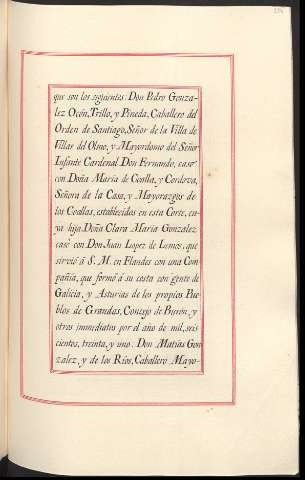 que son los siguientes: Don Pedro Gonza-
lez Ocón, Trillo, y Pineda, Caballero del
Orden de Santiago, Señor de la Villa de
Villar del Olmo, y Mayordomo del Señor
Infante Cardenal Don Fernando, casó
con Doña Maria de Coalla, y Cordova,
Señora de la Casa, y Mayorazgos de
los Coallas, establecidos en esta Corte, cu-
ya hija Doña Clara Maria Gonzalez
casó con Don Juan Lopez de Lemos, que
sirvió á S. M. en Flandes con una Com
pañia, que formó á su costa con gente de
Galicia, y Asturias de los propios Pue
blos de Grandas, Concejo de Burón, y
otros immediatos por el año de mil, seis
cientos, treinta, y uno: Don Matias Gon
zalez, y de los Rios, Caballero Mayo-